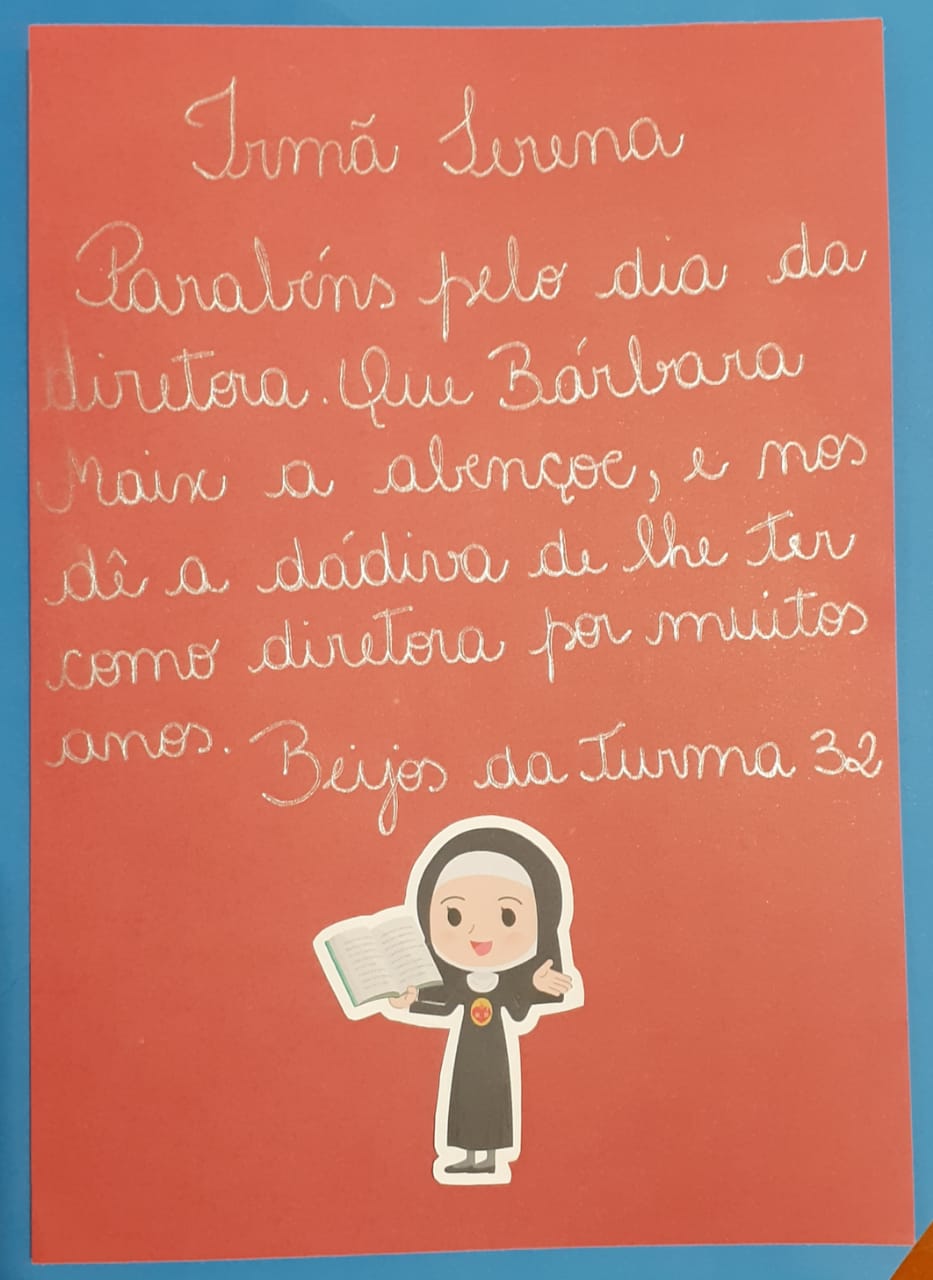 Irmã Serena
Parabéns pelo dia da
diretora. Que Bárbara
Maix a abençoe, e nos
dê a dádiva de lhe ter
como diretora por muitos
anos. Beijos da Turma 32